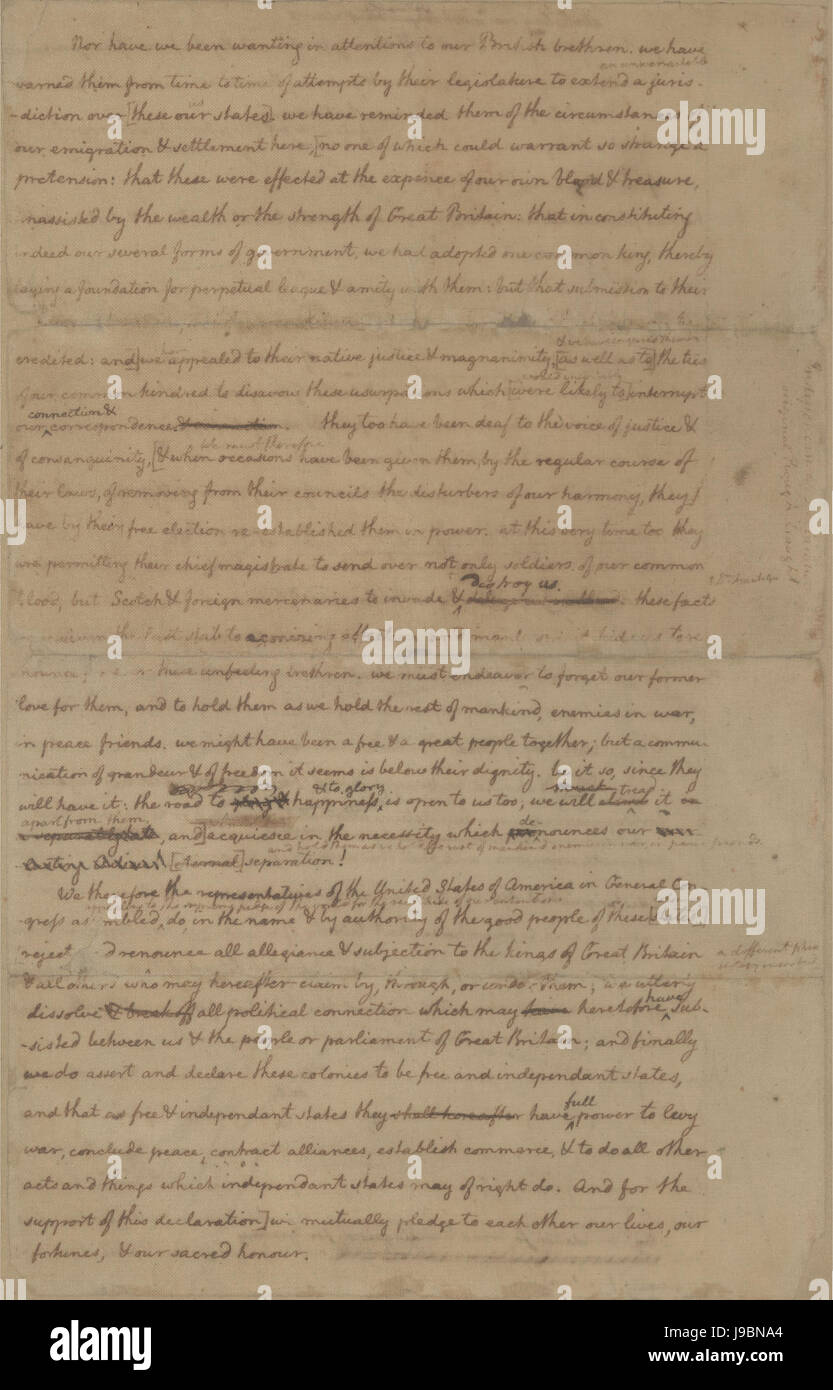 Nor have we been wanting in attentions to our British brethren. we have
an unwarrantable
warned them from time to time of attempts by their legislature to extend a juris-
us
-diction over [these our states]. we have reminded them of the circumstances of
our emigration & settlement here, [no one of which could warrant so strange a
pretension: that these were effected at the expence of our own blood & treasure,
unassisted by the wealth or the strength of Great Britain: that in constituting
indeed our several forms of government, we had adopted one common king, thereby
laying a foundation for perpetual league & amity with them: but that submission to their
credited: and] we appealed to their native justice & magnanimity, [as well as to] the ties
of our common kindred to disavow these usurpations which [were likely to] interrupt
connection &
our correspondence. they too have been deaf to the voice of justice &
we must therefore
of consanguinity, [& when occasions have been given them, by the regular course of
their laws, of removing from their councils the disturbers of our harmony, they
have by their free election re-established them in power. at this very time too they
are permitting their chief magistrate to send over not only soldiers of our common
destroy us.
blood, but Scotch & foreign mercenaries to invade & these facts
have given the last stab to agonizing affection
these unfeeling brethren. we must endeavor to forget our former
love for them, and to hold them as we hold the rest of mankind, enemies in war,
in peace friends. we might have been a free & a great people together; but a commu-
nication of grandeur & of freedom it seems is below their dignity. be it so, since they
& to glory must tread
will have it: the road to happiness, is open to us too; we will it
apart from them, de-
and] acquiesce in the necessity which nounces our
and hold them as we hold the rest of mankind enemies in war, in peace friends.
[eternal] separation!
We therefore the representatives of the United States of America in General Con-
gress assembled, do, in the name & by authority of the good people of these [states,
reject and renounce all allegiance & subjection to the kings of Great Britain
a different phra
& all others who may hereafter claim by, through, or under them; we utterly
have
dissolve & break off all political connection which may have heretofore sub-
-sisted between us & the people or parliament of Great Britain; and finally
we do assert and declare these colonies to be free and independant states,
full
and that as free & independant states they shall hereafter have power to levy
war, conclude peace, contract alliances, establish commerce, & to do all other
acts and things which independant states may of right do. And for the
support of this declaration] we mutually pledge to each other our lives, our
fortunes, & our sacred honour.
alamy stock photo
alamy
Image ID: J9BNA4
www.alamy.com